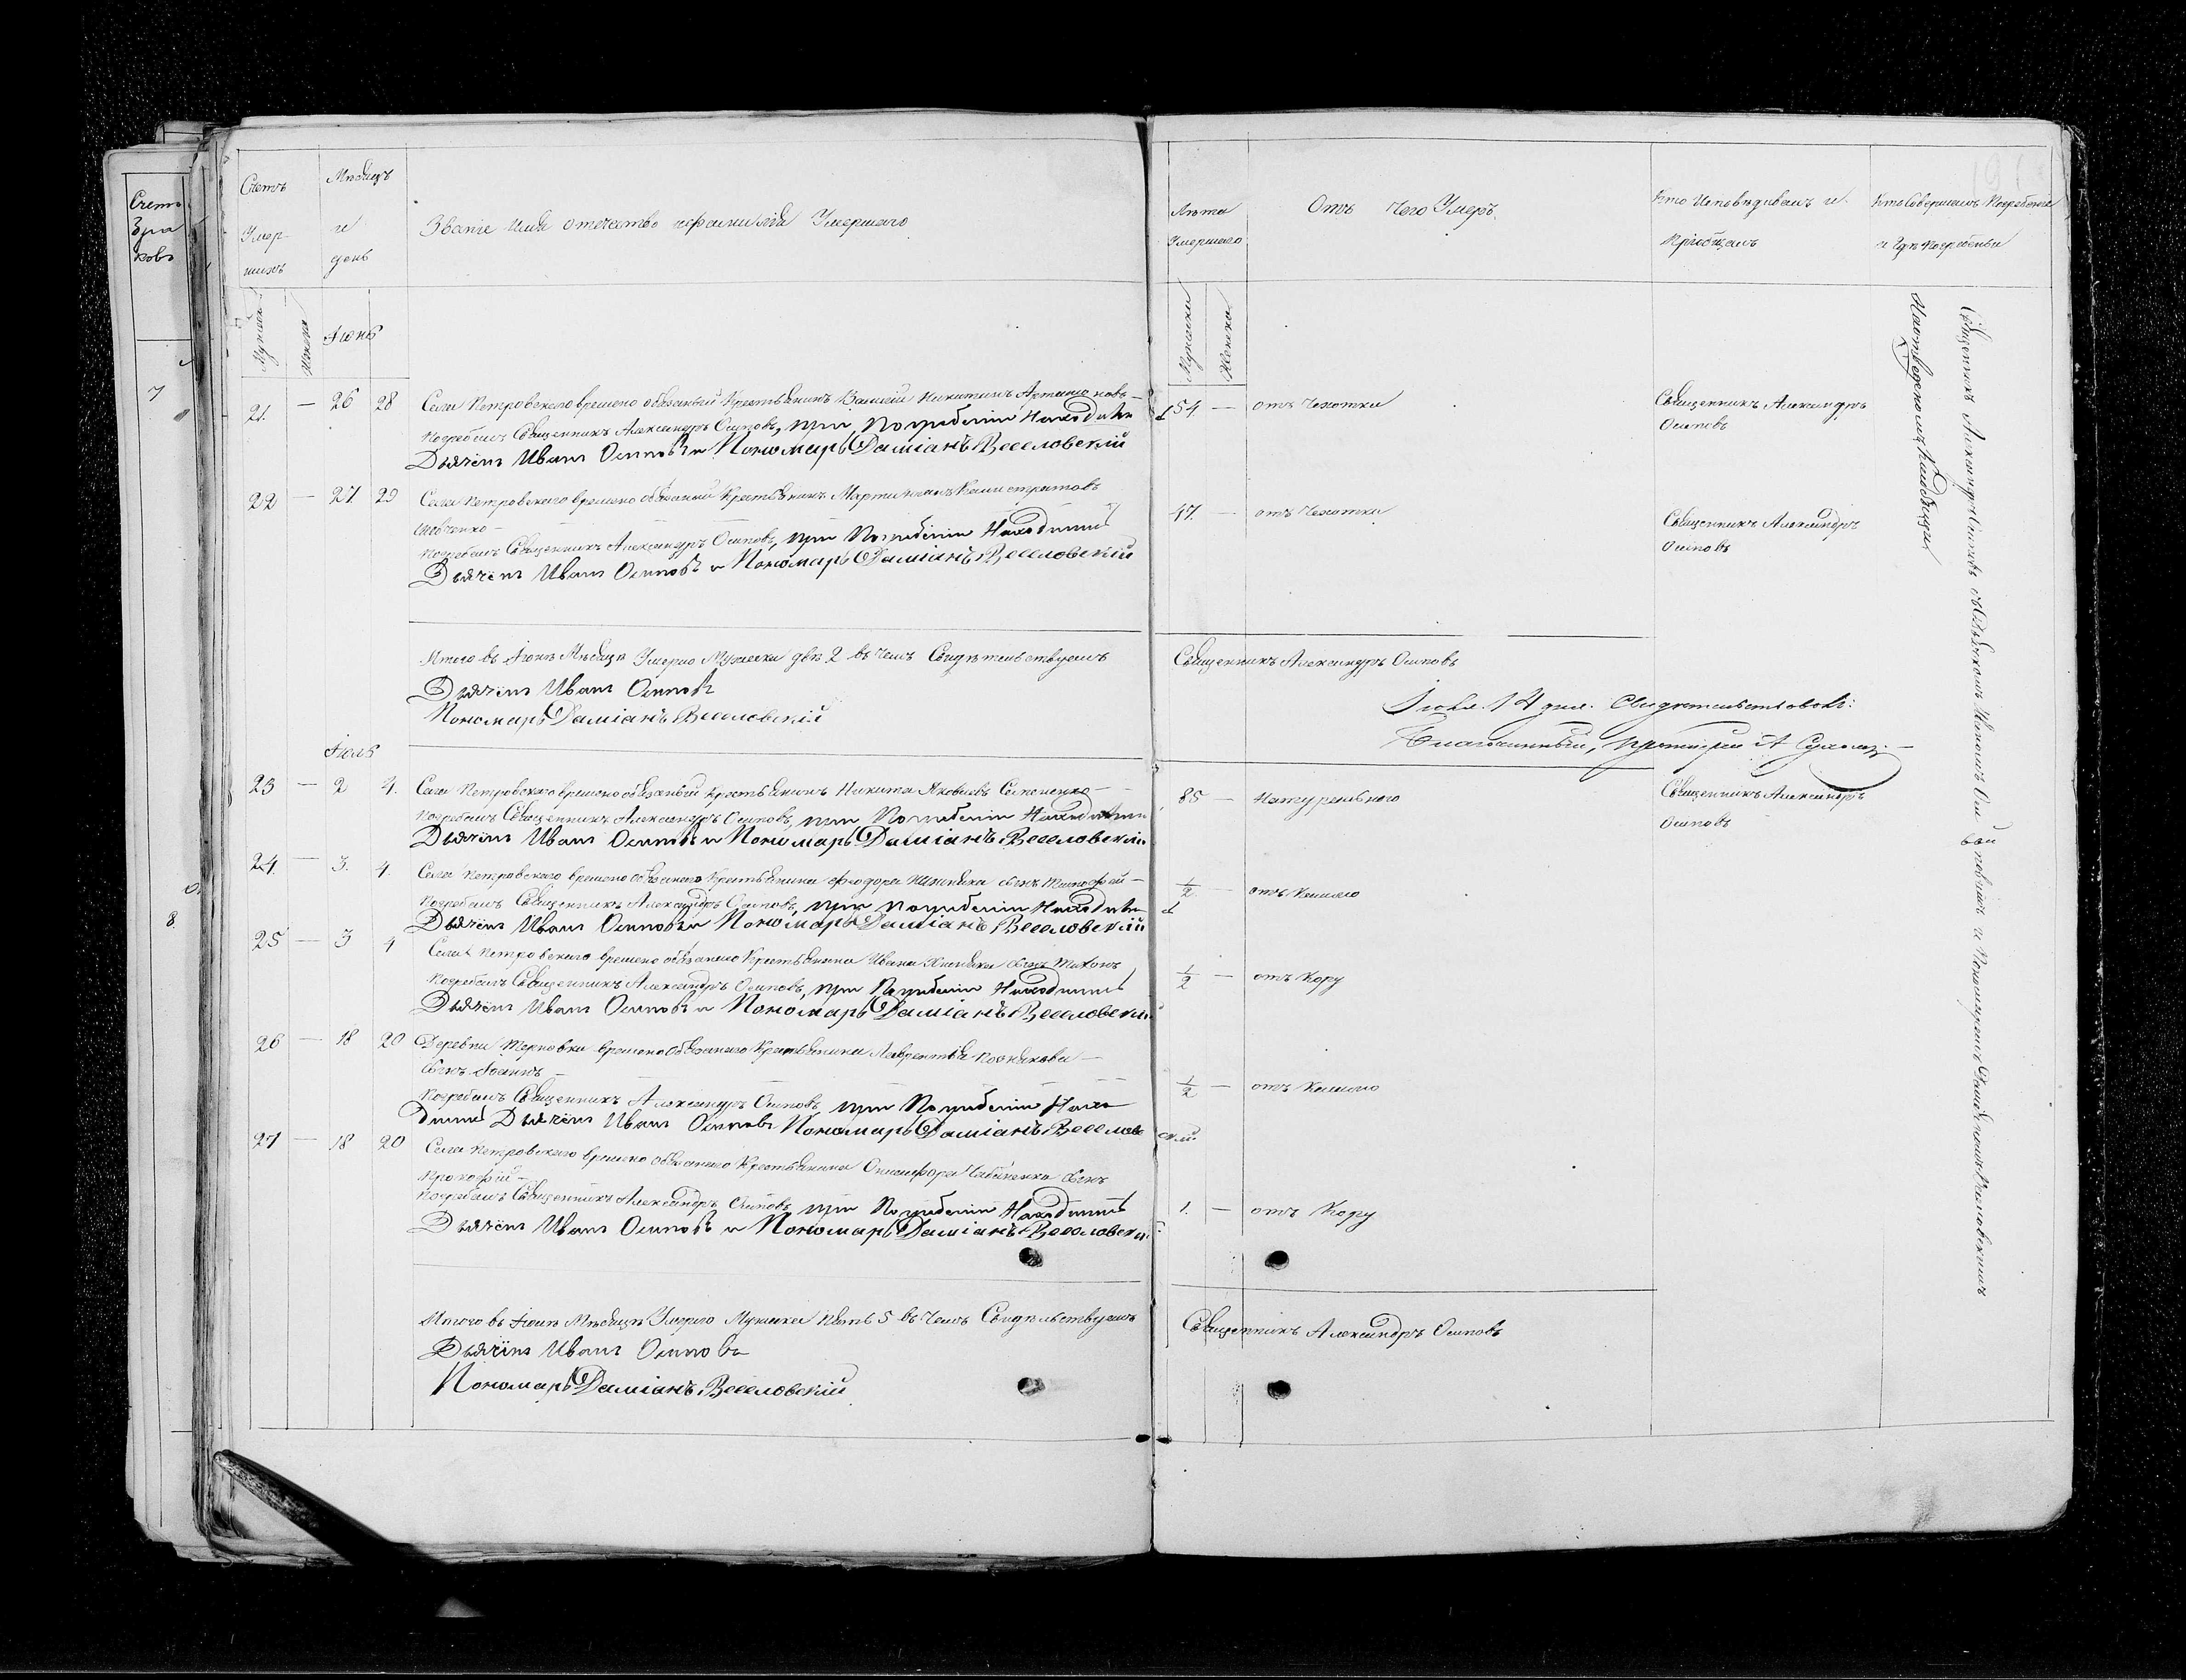 Счетъ
Умер-
шихъ
Мѣсяцъ
и
день
Званіе имя отечество и фамилія Умершаго
Лѣта
Умершаго
Отъ Чего Умеръ.
Кто Исповѣдывалъ и
Пріобщалъ
Кто Совершалъ Погребеніе
и Гдѣ Погребены
Мужеска
Женска
Іюнь
Мужеска
Женска
21. — 26 28 Села Петровскаго временно обязаный Крестьянинъ Василій Никитинъ —
погребалъ Священникъ Александръ Осиповъ, при Погребеніи Находил
Дьячёкъ Иванъ Осиповъ и Пономарь Даміанъ Веселовскій
54 — отъ Чахотки
Священникъ Александръ
Осиповъ
22 — 27 29 Села Петровскаго временно обязаный Крестьянинъ Мартинъ Калистратовъ
погребалъ Священникъ Александръ Осиповъ, при Погребеніи Находились
Дьячёкъ Иванъ Осиповъ и Пономарь Даміанъ Веселовскій
47. — отъ Чахотки
Священникъ Александръ
Осиповъ
Итого въ Іюнѣ Мѣсяцѣ Умерло Мужеска два 2 въ Чемъ Свидѣтельствуемъ
Священникъ Александръ Осиповъ
Дьячёкъ Иванъ Осиповъ
Пономарь Даміанъ Веселовскій
Іюля 14 дня. Свидетельствовалъ:
Благочинный, Протіерей А
Іюль
23 — 2 4. Села Петровскаго временно обязаный Крестьянинъ Никита Яковлевъ —
погребалъ Священникъ Александръ Осиповъ, при Погребеніи Находили
Дьячёкъ Иванъ Осиповъ и Пономарь Даміанъ Веселовскій
85 — Натуральнаго
Священникъ Александръ
Осиповъ
24. — 3. 4. Села Петровскаго временно обязанаго Крестьянина Феодора сынъ Тимофей —
погребалъ Священникъ Александръ Осиповъ, при погребеніи Находил
Дьячёкъ Иванъ Осиповъ и Пономарь Даміанъ Веселовскій
1/2 — отъ Кашлю
25 — 3 4 Села Петровскаго временно обязанаго Крестьянина Ивана сынъ Тихонъ
погребалъ Священникъ Александръ Осиповъ, при Погребеніи Находились
Дьячёкъ Иванъ Осиповъ и Пономарь Даміанъ Веселовскі
1/2 — отъ Кору
26 — 18 20 Деревни Терновки временно обязанаго Крестьянина Лаврентія Познякова —
сынъ Іоаннъ —
погребалъ Священникъ Александръ Осиповъ, при Погребеніи Нахо
дились Дьячёкъ Иванъ Осиповъ Пономарь Даміанъ Веселов
скій
1/2 — отъ Кашлю
27 — 18 20 Села Петровскаго временно обязанаго Крестьянина Онисифора сынъ
Прокофій —
погребалъ Священникъ Александръ Осиповъ, при Погребеніи Находились
Дьячёкъ Иванъ Осиповъ и Пономарь Даміанъ Веселовскі
1. — отъ Кору
Итого въ Іюлѣ Мѣсяцѣ Умерло Мужеска Пять 5 въ Чемъ Свидѣльствуемъ
Священникъ Александръ Осиповъ
Дьячёкъ Иванъ Осиповъ
Пономарь Даміанъ Веселовскій
Священникъ Александръ Осиповъ съ Дьячкомъ Иваномъ Осиповымъ и Пономаремъ Даміаномъ Веселовскимъ
На Отведеномъ Кладбищи
Счетъ
Бра
ковъ
7
8